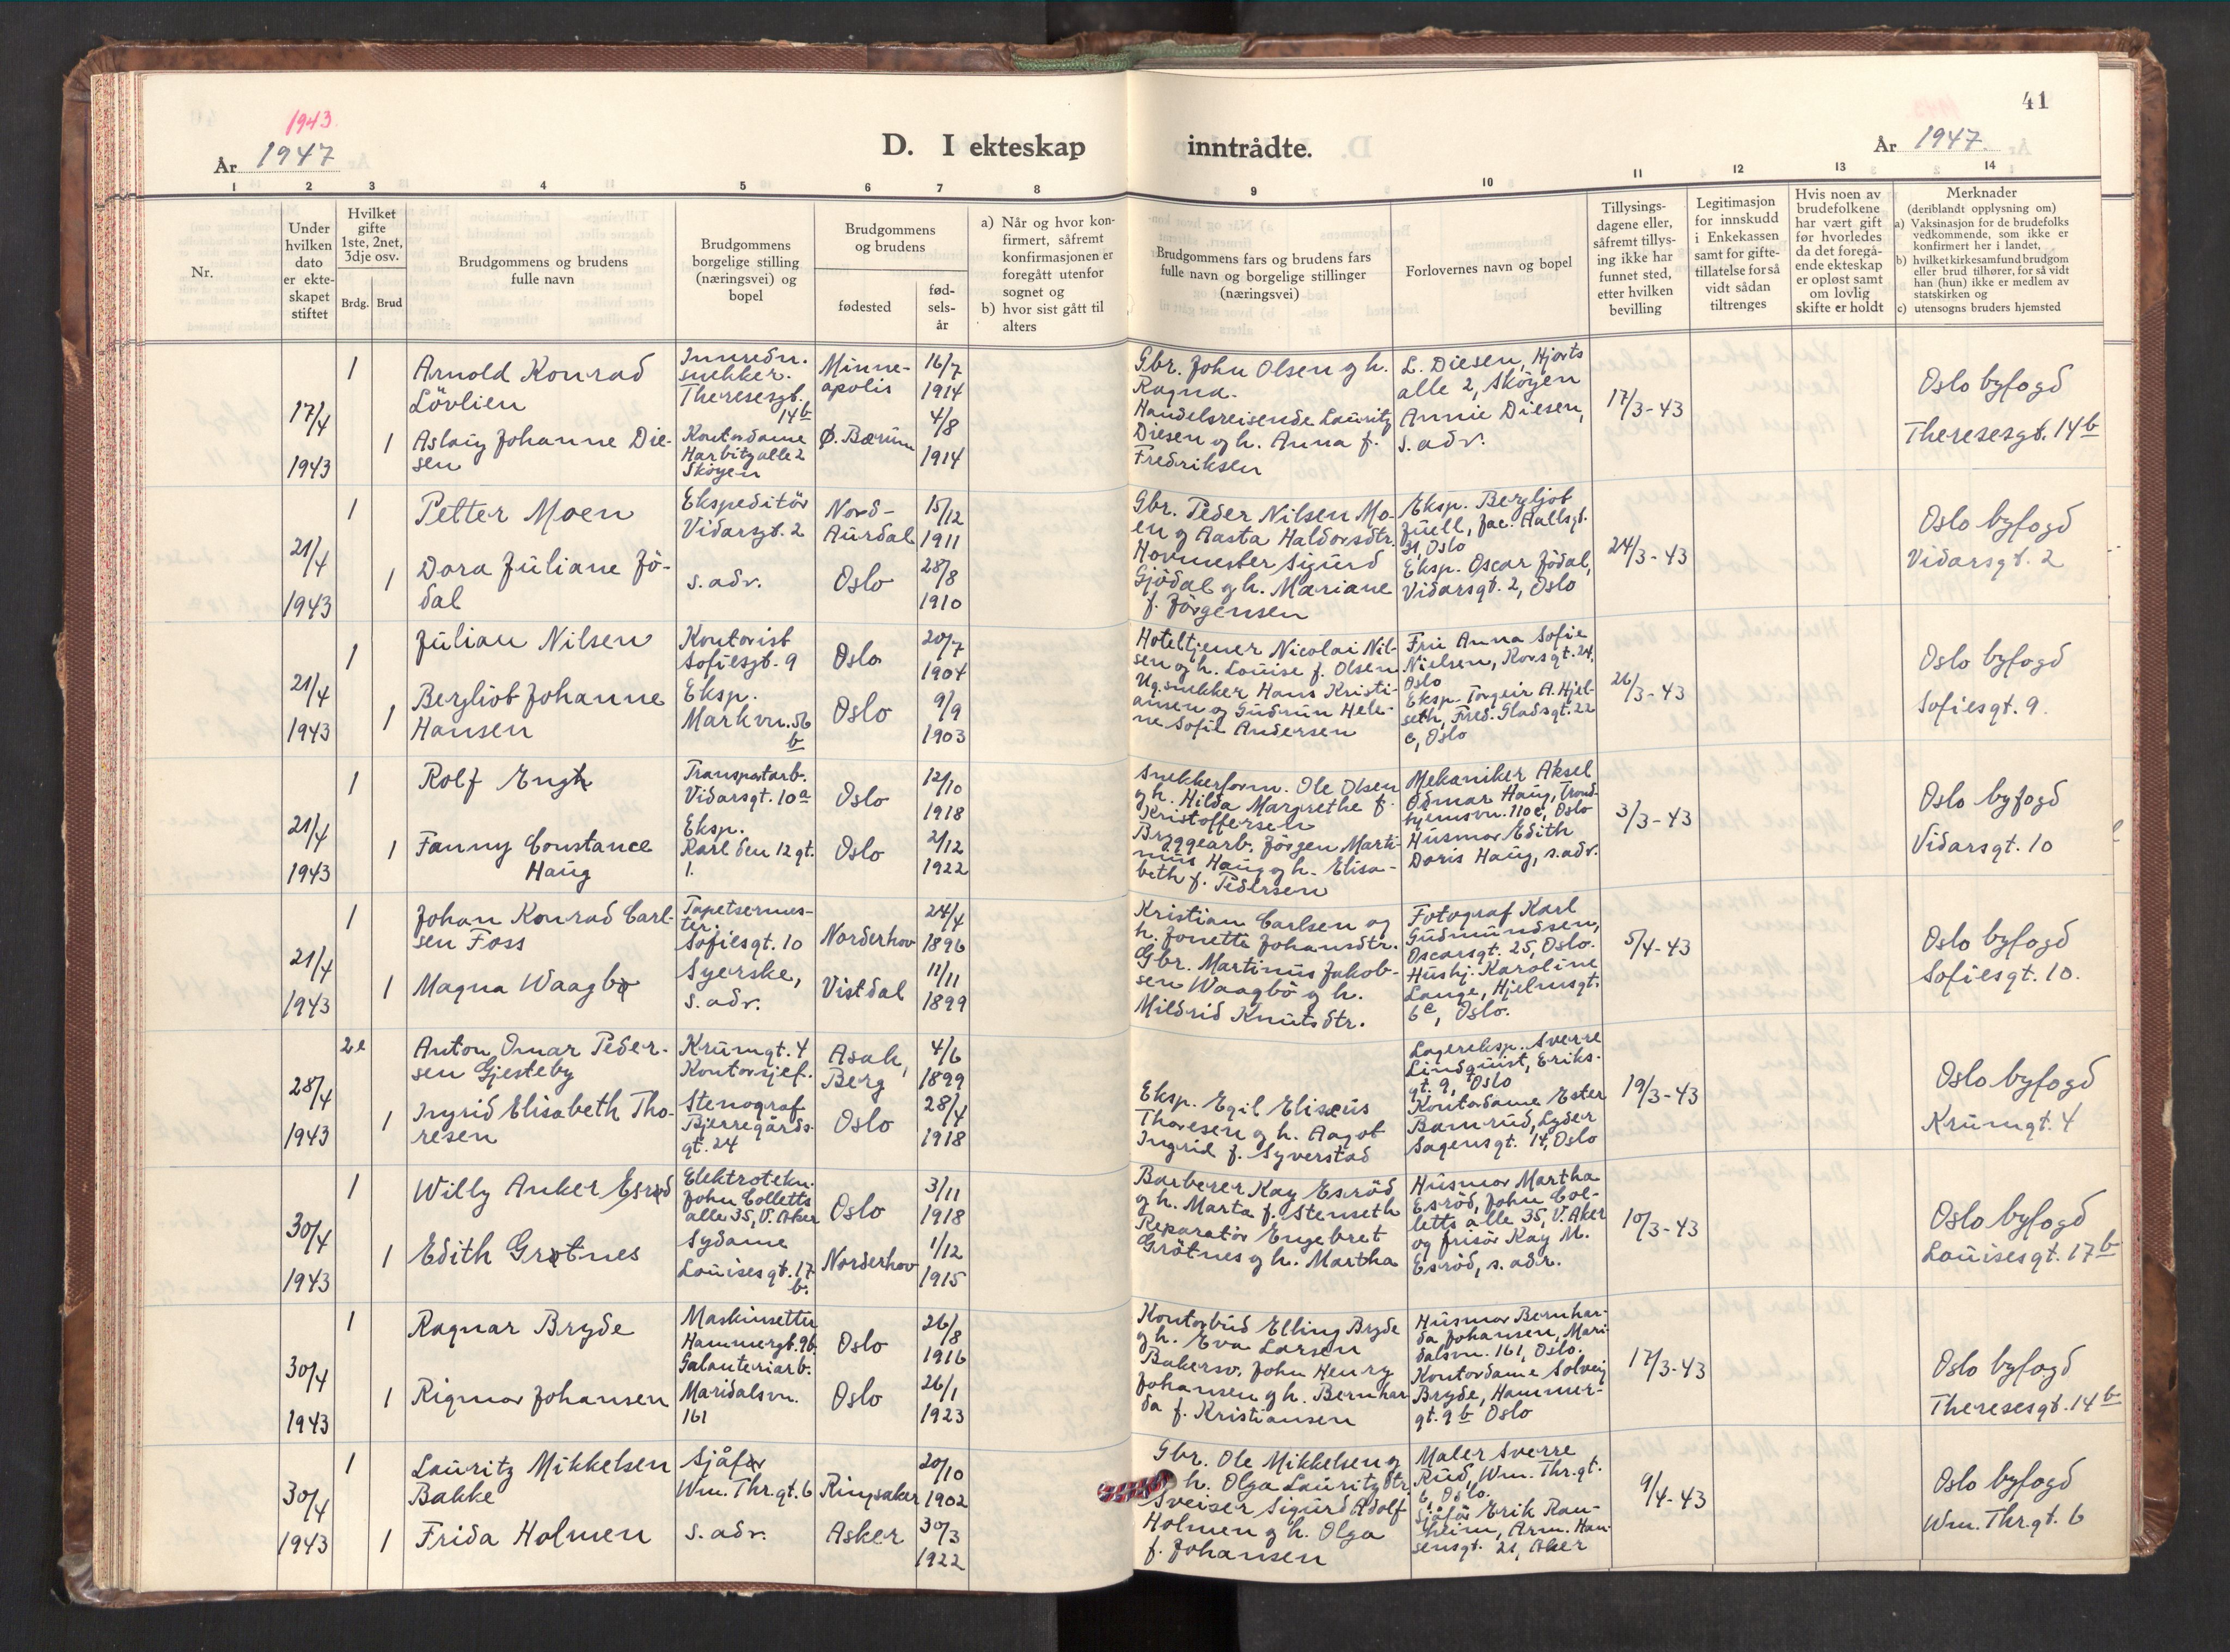 1943
År 1947
D. I ekteskap inntrådte.
41
År 1947.
1 2 3 4 5 6 7 8 9 10 11 12 13 14
Nr.
Under
hvilken
dato
er ekte-
skapet
stiftet
Hvilket
gifte
1ste, 2net,
3dje osv.
Brdg. Brud
Brudgommens og brudens
fulle navn
Brudgommens
borgelige stilling
(næringsvei) og
bopel
Brudgommens
og brudens
fødested
fød-
sels-
år
a) Når og hvor kon-
firmert, såfremt
konfirmasjonen er
foregått utenfor
sognet og
b) hvor sist gått til
alters
Brudgommens fars og brudens fars
fulle navn og borgelige stillinger
(næringsvei)
Forlovernes navn og bopel
Tillysings-
dagene eller,
såfremt tillys-
ing ikke har
funnet sted,
etter hvilken
bevilling
Legitimasjon
for innskudd
i Enkekassen
samt for gifte-
tillatelse for så
vidt sådan
tiltrenges
Hvis noen av
brudefolkene
har vært gift
før hvorledes
da det foregå-
ende ekteskap
er opløst samt
om lovlig
skifte er holdt
Merknader
(deriblandt opplysning om)
a) Vaksinasjon for de brudefolks
vedkommende, som ikke er
konfirmert her i landet,
b) hvilket kirkesamfund brudgom
eller brud tilhører, for så vidt
han (hun) ikke er medlem av
statskirken og
c) utensogns bruders hjemsted
17/4
1943
1
1
Arnold Konrad
Lövlien
Aslaug Johanne Die-
sen
Innredn.
snekker.
Theresesgt.
14b
Kontordame
Harbitzalle 2
Skøyen
Minne-
apolis
Ø. Bærum
16/7
1914
4/8
1914
Gbr. John Olsen og h.
Ragna.
Handelsreisende Lauritz
Diesen og h. Anna f.
Fredriksen
L. Diesen, Hjorts
alle 2, Skøyen
Annie Diesen,
s. adr.
17/3-43
Oslo byfogd
Theresesgt. 14b
21/4
1943
1
1
Petter Moen
Dora Juliane Jö-
dal
Ekspeditör
Vidarsgt. 2
s. adr.
Nord-
Aurdal
Oslo
15/12
1911
28/8
1910
Gbr. Peder Nilsen Mo-
en og Aasta Haldorsdtr.
Hovmester Sigurd
Gjödal og h. Mariane
f. Jörgensen
Eksp. Bergljot
Juell, Jac. Aallsgt.
31, Oslo
Eksp. Oscar Jödal,
Vidarsgt. 2, Oslo
24/3-43
Oslo byfogd
Vidarsgt. 2
21/4
1943
1
1
Julian Nilsen
Bergliot Johanne
Hansen
Kontorist
Sofiesgt. 9
Eksp.
Markvn. 56
b
Oslo
Oslo
20/7
1904
9/9
1903
Hoteltjener Nicolai Nil-
sen og h. Louise f. Olsen
Ug. snekker Hans Kristi-
ansen og Gudrun Hele-
ne Sofie Andersen
Fru Anna Sofie
Nielsen, Korsgt. 24,
Oslo
Eksp. Torgeir A. Hjel-
seth, Fred. Gladsgt. 22
c, Oslo
26/3-43
Oslo byfogd
Sofiesgt. 9.
21/4
1943
1
1
Rolf Engh
Fanny Constance
Haug
Transportarb.
Vidarsgt. 10a
Eksp.
Karl den 12 gt.
1.
Oslo
Oslo
12/10
1918
2/12
1922
Snekkerform. Ole Olsen
og h. Hilda Margrethe f.
Kristoffersen
Bryggearb. Jörgen Marti-
nius Haug og h. Elisa-
beth f. Pedersen
Mekaniker Aksel
Odmar Haug, Trond-
hjemsvn. 110c, Oslo
Husmor Edith
Doris Haug, s. adr.
3/3-43
Oslo byfogd
Vidarsgt. 10
21/4
1943
1
1
Johan Konrad Carl-
sen Foss
Magna Waagbø
Tapetsermes-
ter.
Sofiesgt. 10
Syerske,
s. adr.
Norderhov
Vistdal
24/4
1896
11/11
1899
Kristian Carlsen og
h. Jonette Johansdtr.
Gbr. Martinus Jakob-
sen Waagbö og h.
Mildrid Knutsdtr.
Fotograf Karl
Gudmundsen,
Oscarsgt. 25, Oslo.
Hushj. Karoline
Lange, Hjelmsgt.
6c, Oslo.
5/4-43
Oslo byfogd
Sofiesgt. 10.
28/4
1943
2e
1
Anton Omar Peder-
sen Gjesteby
Ingrid Elisabeth Tho-
resen
Krumgt. 4
Kontorsjef.
Stenograf
Bjerregårds-
gt. 24
Asak,
Berg
Oslo
4/6
1899
28/4
1918
Eksp. Egil Elisæus
Thoresen og h. Aagot
Ingrid f. Syverstad
Lagereksp. Sverre
Lindquist, Eriks-
gt. 9, Oslo
Kontordame Ester
Bamrud, Lyder
Sagensgt. 14, Oslo
19/3-43
Oslo byfogd
Krumgt. 4
30/4
1943
1
1
Willy Anker Esrød
Edith Grøtnes
Elektrotekn.
John Colletts
alle 35, V. Aker
Sydame
Louisesgt. 17
b.
Oslo
Norderhov
3/11
1918
1/12
1915
Barberer Kay Esröd
og h. Marta f. Stenseth
Reparatör Engebret
Grötnes og h. Martha
Husmor Martha
Esröd, John Col-
letts alle 35, V. Aker
og frisör Kay M.
Esröd, s. adr.
10/3-43
Oslo byfogd
Louisesgt. 17b
30/4
1943
1
1
Ragnar Bryde
Rigmor Johansen
Maskinsetter
Hammergt. 9b.
Galanteriarb.
Maridalsvn.
161
Oslo
Oslo
26/8
1916
26/1
1923
Kontorbud Elling Bryde
og h. Eva Larsen
Bakersv. John Henry
Johansen og h. Bernhar
da f. Kristiansen
Husmor Bernhar-
da Johansen, Mari-
dalsvn. 161, Oslo.
Kontordame Solveig
Bryde, Hammer-
gt. 9 b Oslo
17/3-43
Oslo byfogd
Theresesgt. 14b
30/4
1943
1
1
Lauritz Mikkelsen
Bakke
Frida Holmen
Sjåfør
Wm. Thr. gt. 6
s. adr.
Ringsaker
Asker
20/10
1902
30/3
1922
Gbr. Ole Mikkelsen og
h. Olga Lauritzdtr.
Sveiser Sigurd Adolf
Holmen og h. Olga
f. Johansen
Maler Sverre
Rud, Wm. Thr. gt.
6, Oslo.
Sjåför Erik Ran-
heim, Arm. Han-
sensgt. 21, Aker
9/4-43
Oslo byfogd
Wm. Thr. gt. 6